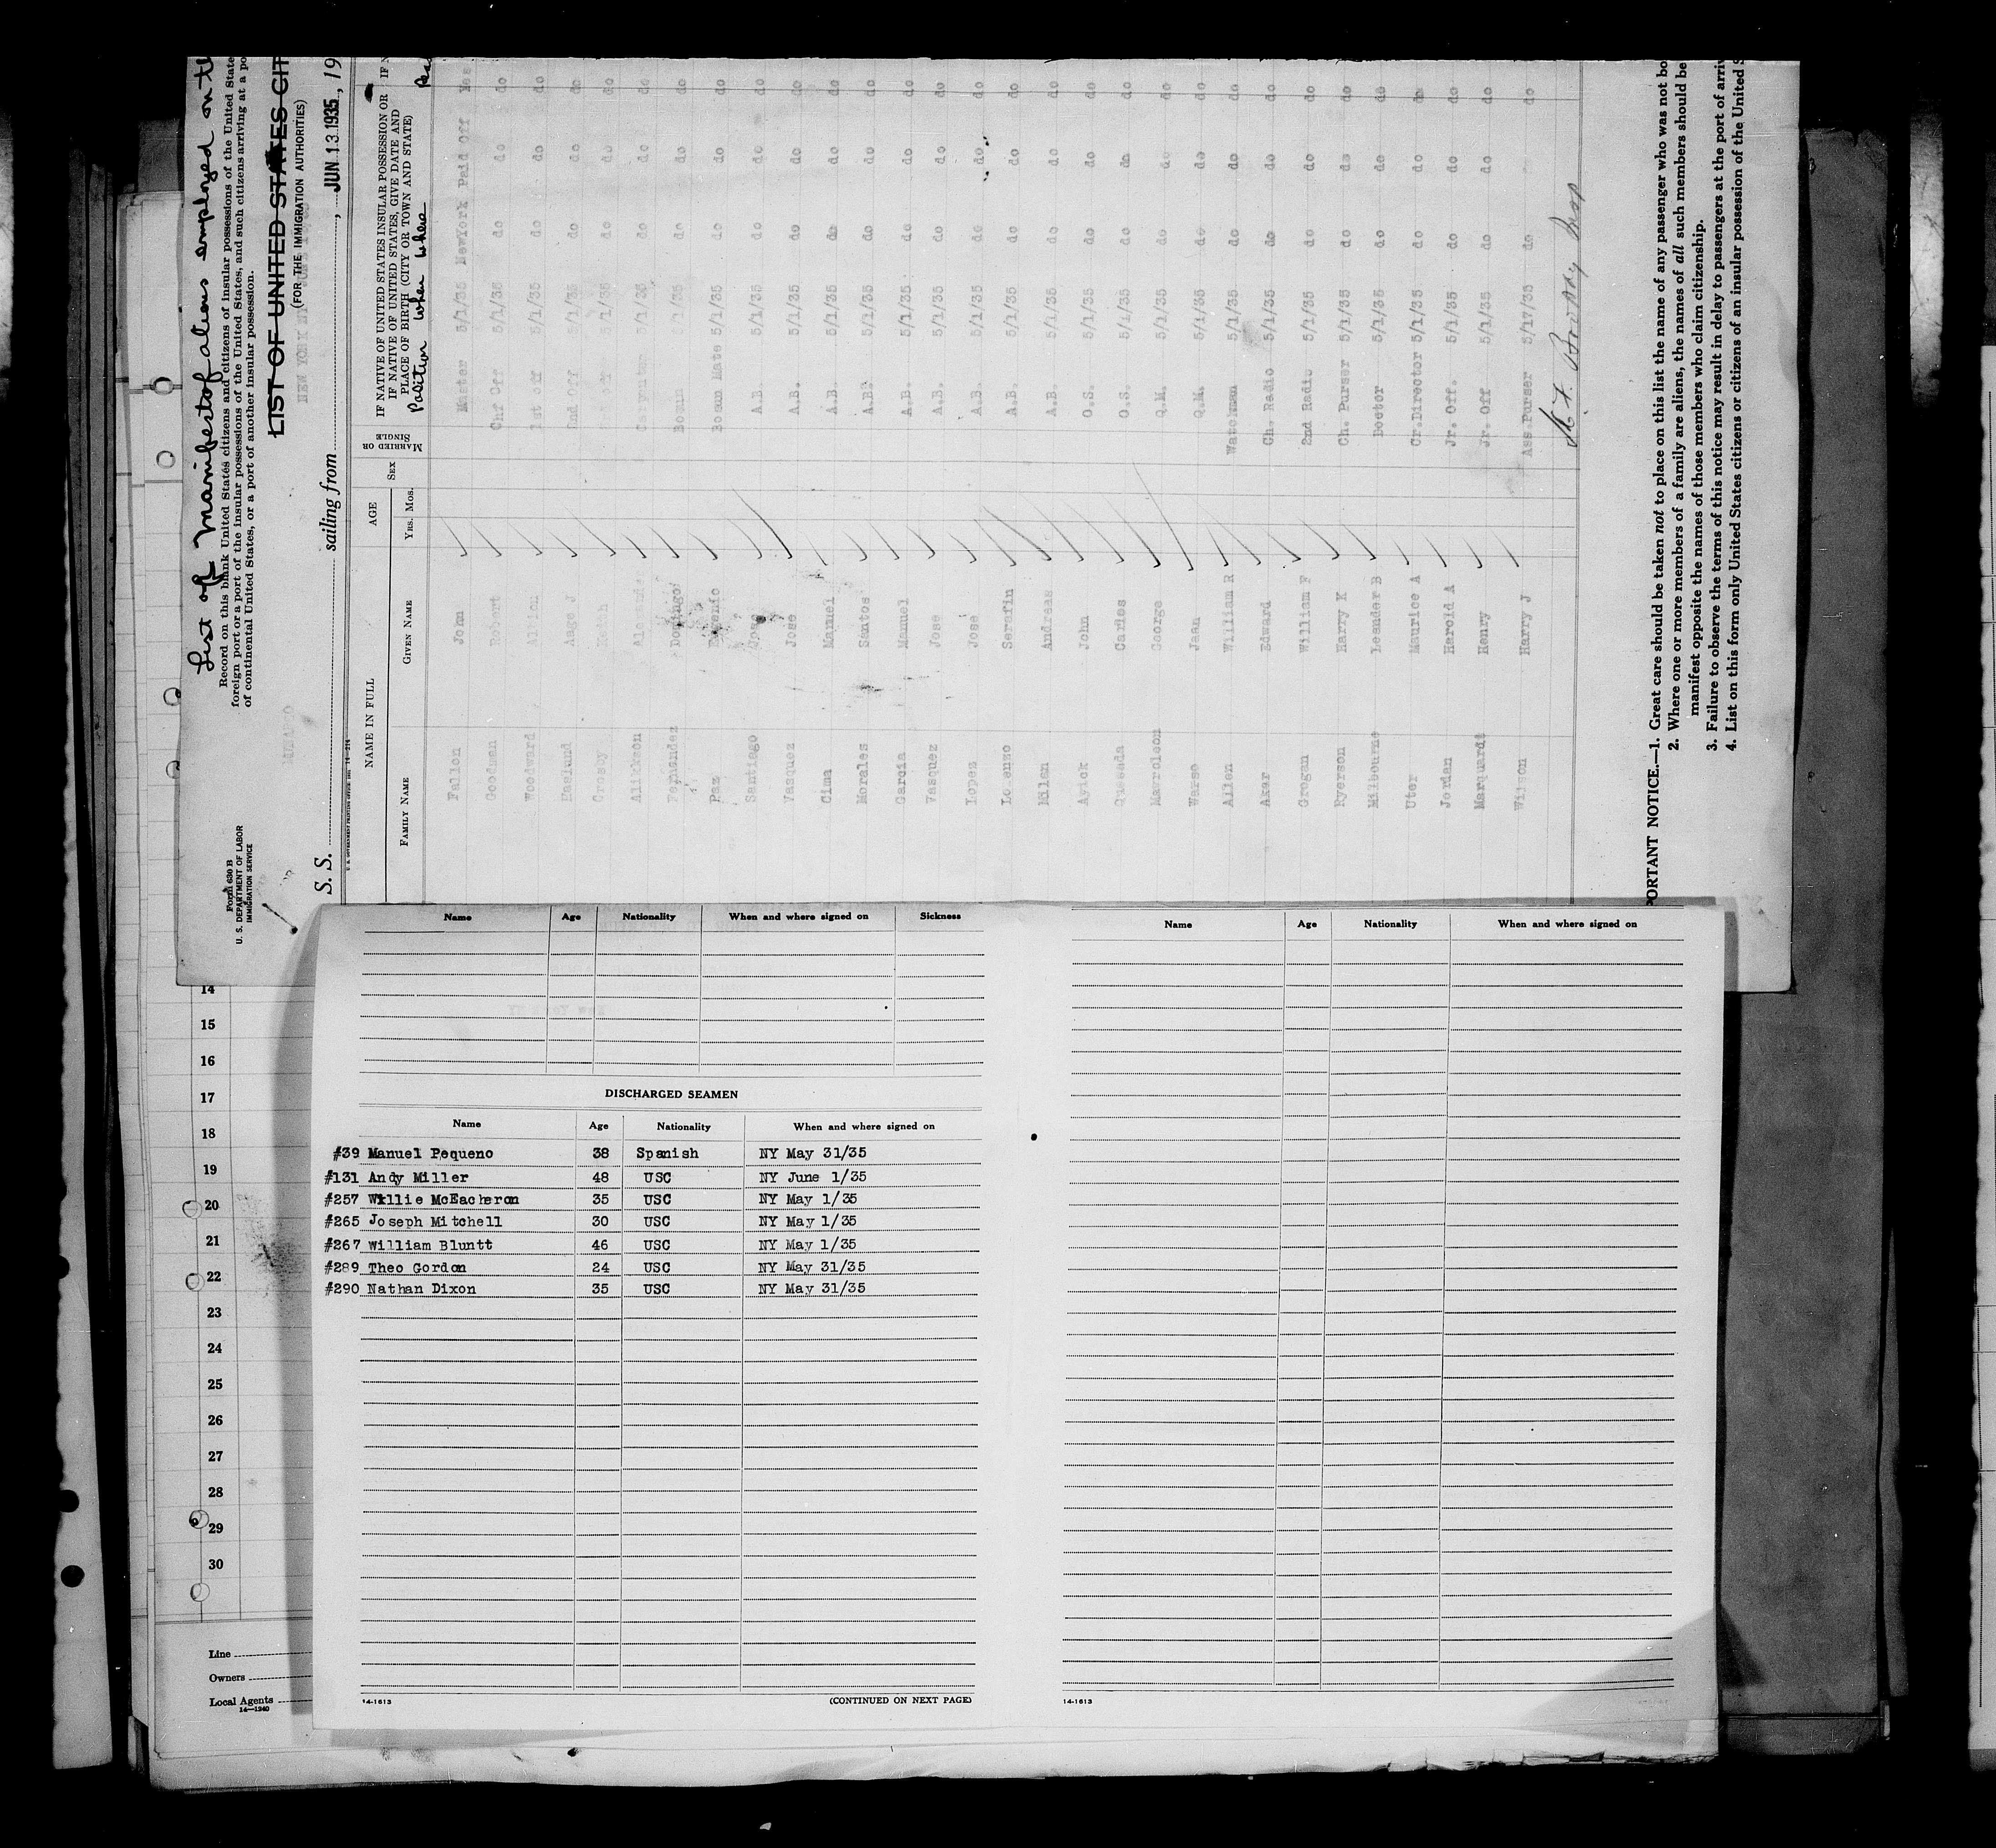 List of Manifest of aliens employed on th
Record on this blank United States citizens and citizens of insular possessions of the United State
foreign port or a port of the insular possessions of the United States, and such citizens arriving at a po
of continental United States, or a port of another insular possession.
LIST OF UNITED STATES CIT
(FOR THE IMMIGRATION AUTHORITIES)
NEW YORK NY
Form 630 B
U. S. DEPARTMENT OF LABOR
IMMIGRATION SERVICE
S. S. sailing from , JUN 13 1935, 19
NAME IN FULL
FAMILY NAME GIVEN NAME
AGE
YRS. MOS.
SEX
MARRIED OR SINGLE
IF NATIVE OF UNITED STATES INSULAR POSSESSION OR
IF NATIVE OF UNITED STATES, GIVE DATE AND
PLACE OF BIRTH (CITY OR TOWN AND STATE)
IF N
Position when where
Fallon John Master 5/1/35 NewYork Paid Off Yes
Goodman Robert Chf Off 5/1/35 do do do
Woodward 1st off 5/1/35 do do do
Haslund Aage J 2nd Off 5/1/35 do do do
Crosby 5/1/35 do do do
5/1/35 do do do
Fernandez Domingo Bosun 5/1/35 do do do
Paz Bosun Mate 5/1/35 do do do
Santiago Jose A.B. 5/1/35 do do do
Vasquez Jose A.B. 5/1/35 do do do
Cima Manuel A.B. 5/1/35 do do do
Morales Santos A.B. 5/1/35 do do do
Garcia Manuel A.B. 5/1/35 do do do
Vasquez Jose A.B. 5/1/35 do do do
Lopez Jose A.B. 5/1/35 do do do
Lorenzo Serafin A.B. 5/1/35 do do do
Milan Andreas A.B. 5/1/35 do do do
John O.S. 5/1/35 do do do
Quesada Carlos O.S. 5/1/35 do do do
Mavroleon George Q.M. 5/1/35 do do do
Jaan Q.M. 5/1/35 do do do
Allen William R Watchman 5/1/35 do do do
Aker Edward Ch. Radio 5/1/35 do do do
Grogan William F 2nd Radio 5/1/35 do do do
Ryerson Harry K Ch. Purser 5/1/35 do do do
Milbourne Leander B Doctor 5/1/35 do do do
Uter Maurice A Cr.Director 5/1/35 do do do
Jordan Harold A Jr. Off. 5/1/35 do do do
Marquardt Henry Jr. Off 5/1/35 do do do
Wilson Harry J Ass.Purser 5/17/35 do do
PORTANT NOTICE.—1. Great care should be taken not to place on this list the name of any passenger who was not bo
2. Where one or more members of a family are aliens, the names of all such members should be
manifest opposite the names of those members who claim citizenship.
3. Failure to observe the terms of this notice may result in delay to passengers at the port of arriv
4. List on this form only United States citizens or citizens of an insular possession of the United S
Name Age Nationality When and where signed on Sickness
DISCHARGED SEAMEN
Name Age Nationality When and where signed on
#39 Manuel Pequeno 38 Spanish NY May 31/35
#131 Andy Miller 48 USC NY June 1/35
#257 Willie McEacheron 35 USC NY May 1/35
#265 Joseph Mitchell 30 USC NY May 1/35
#267 William Bluntt 46 USC NY May 1/35
#289 Theo Gordon 24 USC NY May 31/35
#290 Nathan Dixon 35 USC NY May 31/35
14-1613 (CONTINUED ON NEXT PAGE)
Name Age Nationality When and where signed on
14-1613
14
15
16
17
18
19
20
21
22
23
24
25
26
27
28
29
30
Line
Owners
Local Agents
14—1240